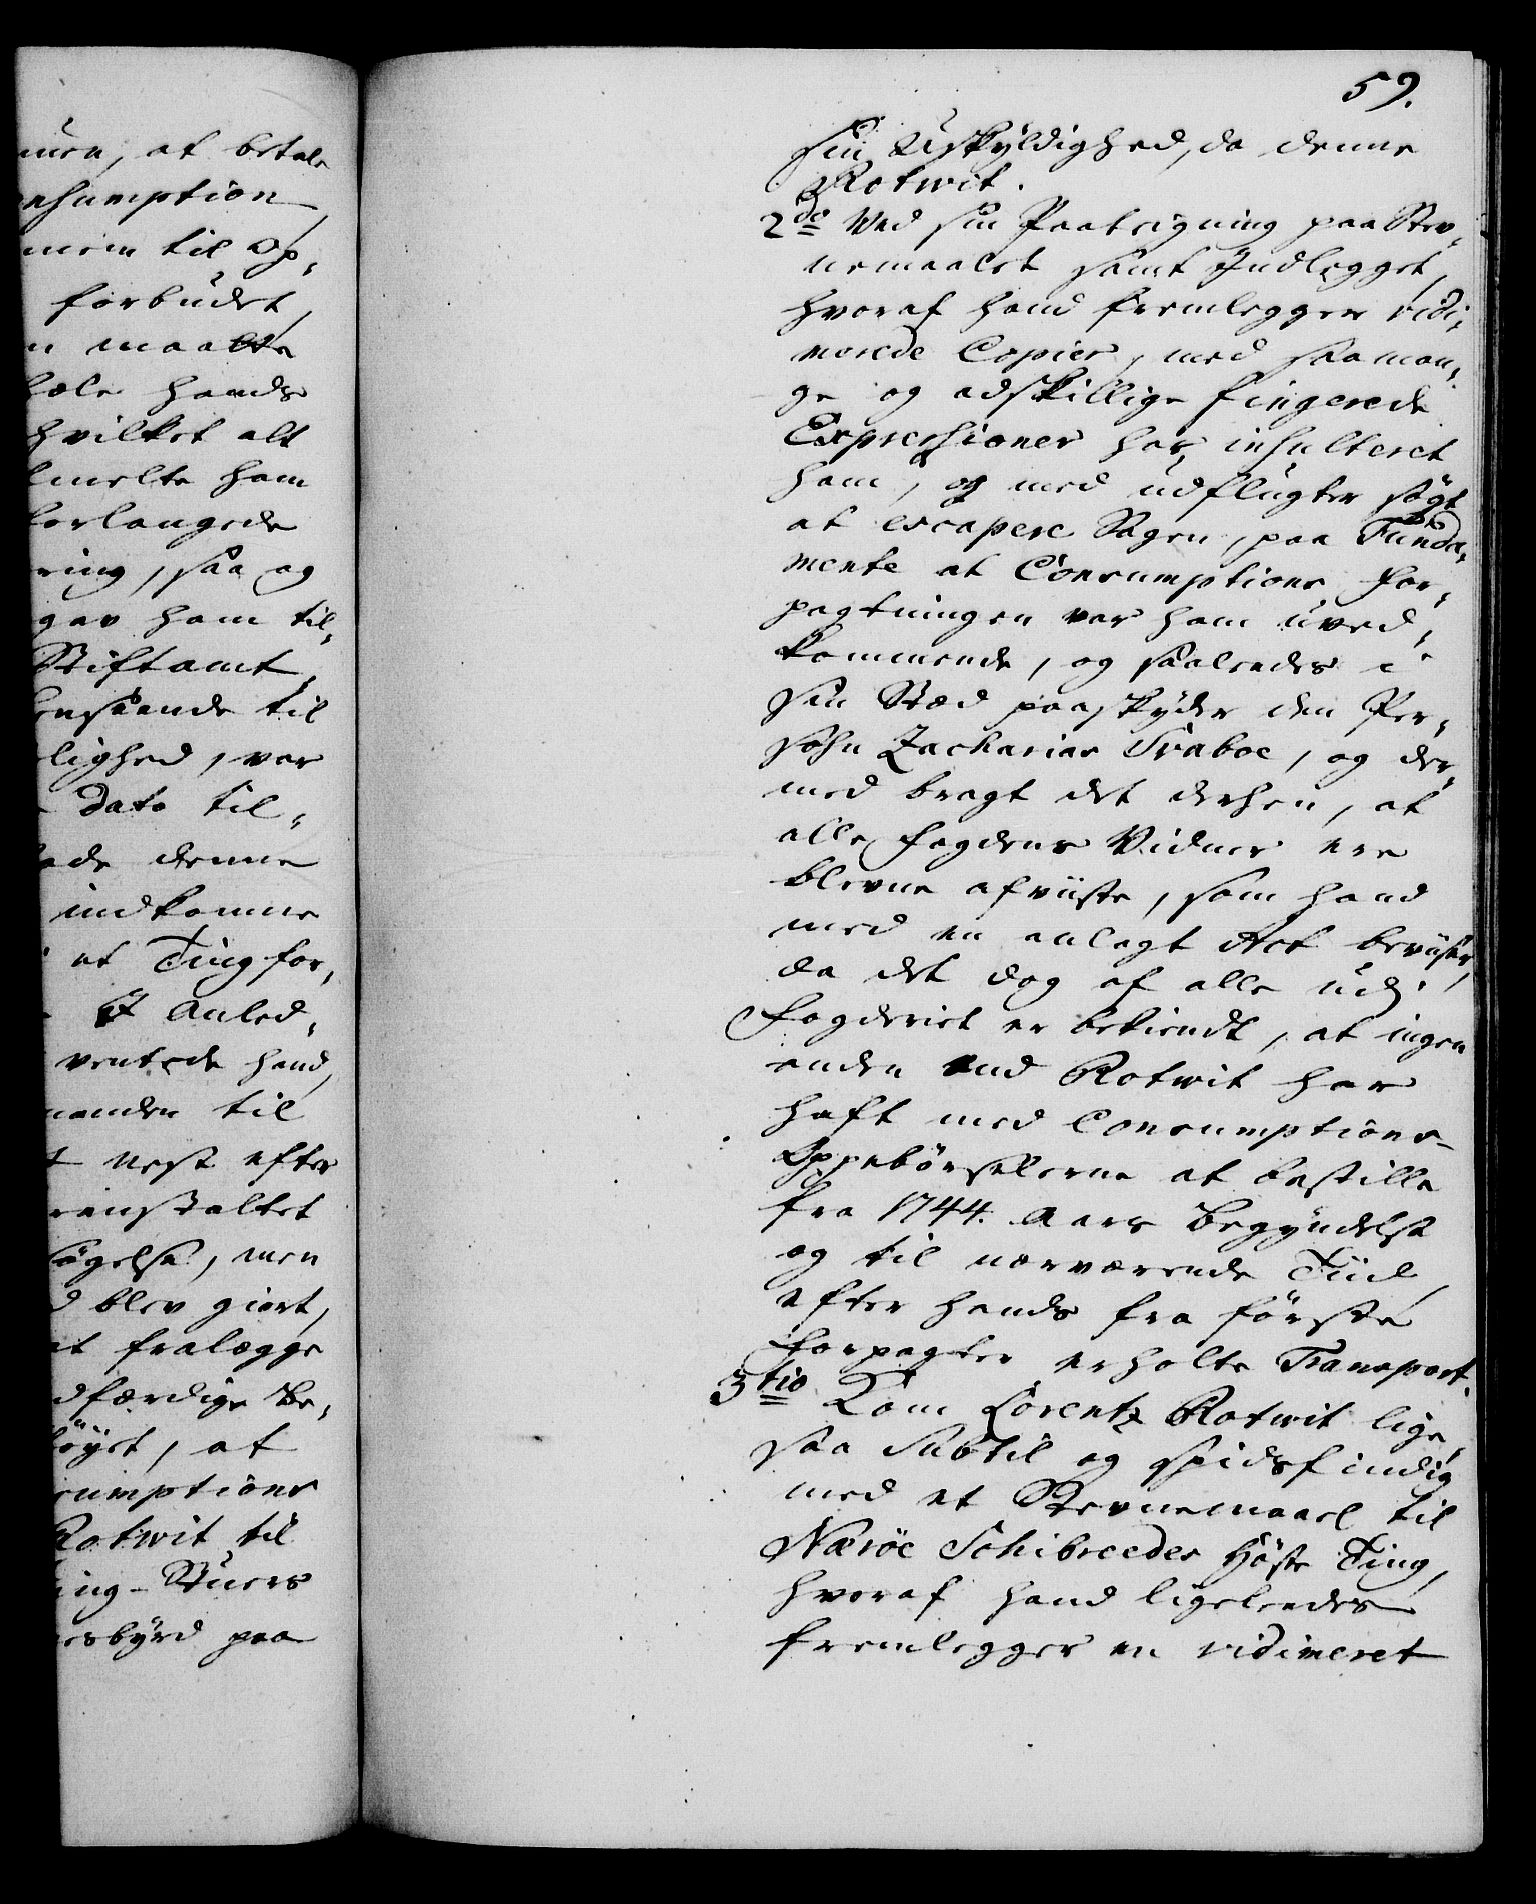 uen, at betale
nsumption,
mem til Op,
forbudet,
n maatte
hæle hands
hvilket alt
lmelte ham
forlangede
ring, saa og
gav ham til,
Stiftamt,
enstaande til
lighed, var
Dato til,
ade denne
indkomme
at Ting for,
Anled,
ventede hand,
manden til
t nest efter
ranstaltet
søgelse, men
d blev giort,
at fralægge
dfærdige Be,
føyet, at
sumptions
Rotwit til
ing-Stuers
esbyrd paa
59.
sin Uskyldighed, da denne
Rotwit.
2do Ved sin Paategning paa Stev,
nemaalet samt Indlegget,
hvoraf hand fremlegger vidi,
merede Copier, med saa man,
ge og adskillige fingerede
Expressioner har insulteret
ham, og med udflugter søgt
at escapere Sagen, paa Funda,
mente at Consumptions For,
pagtningen var ham uved,
kommende, og saaledes i
sin Stæd paaskyder den Per,
sohn Zacharias Traboe, og der,
med bragt det derhen, at
alle Fogdens Vidner ere
blevne afviiste, som hand
med en anlagt Act beviiser,
da det dog af alle udj
Fogderiet er bekiendt, at ingen
anden end Rotwit har
haft med Consumptions-
Oppebørselerne at bestille
fra 1744. Aars Begyndelse
og til nærværende Tiid,
efter hands fra første
Forpagter erholte Transport.
3tio Kom Lorentz Rotwit lige,
saa Subtil og spidsfindig
med et Stevnemaal til
Nærøe Schibreedes Høste Ting,
hvoraf hand ligeleedes
fremlegger en vidimeret